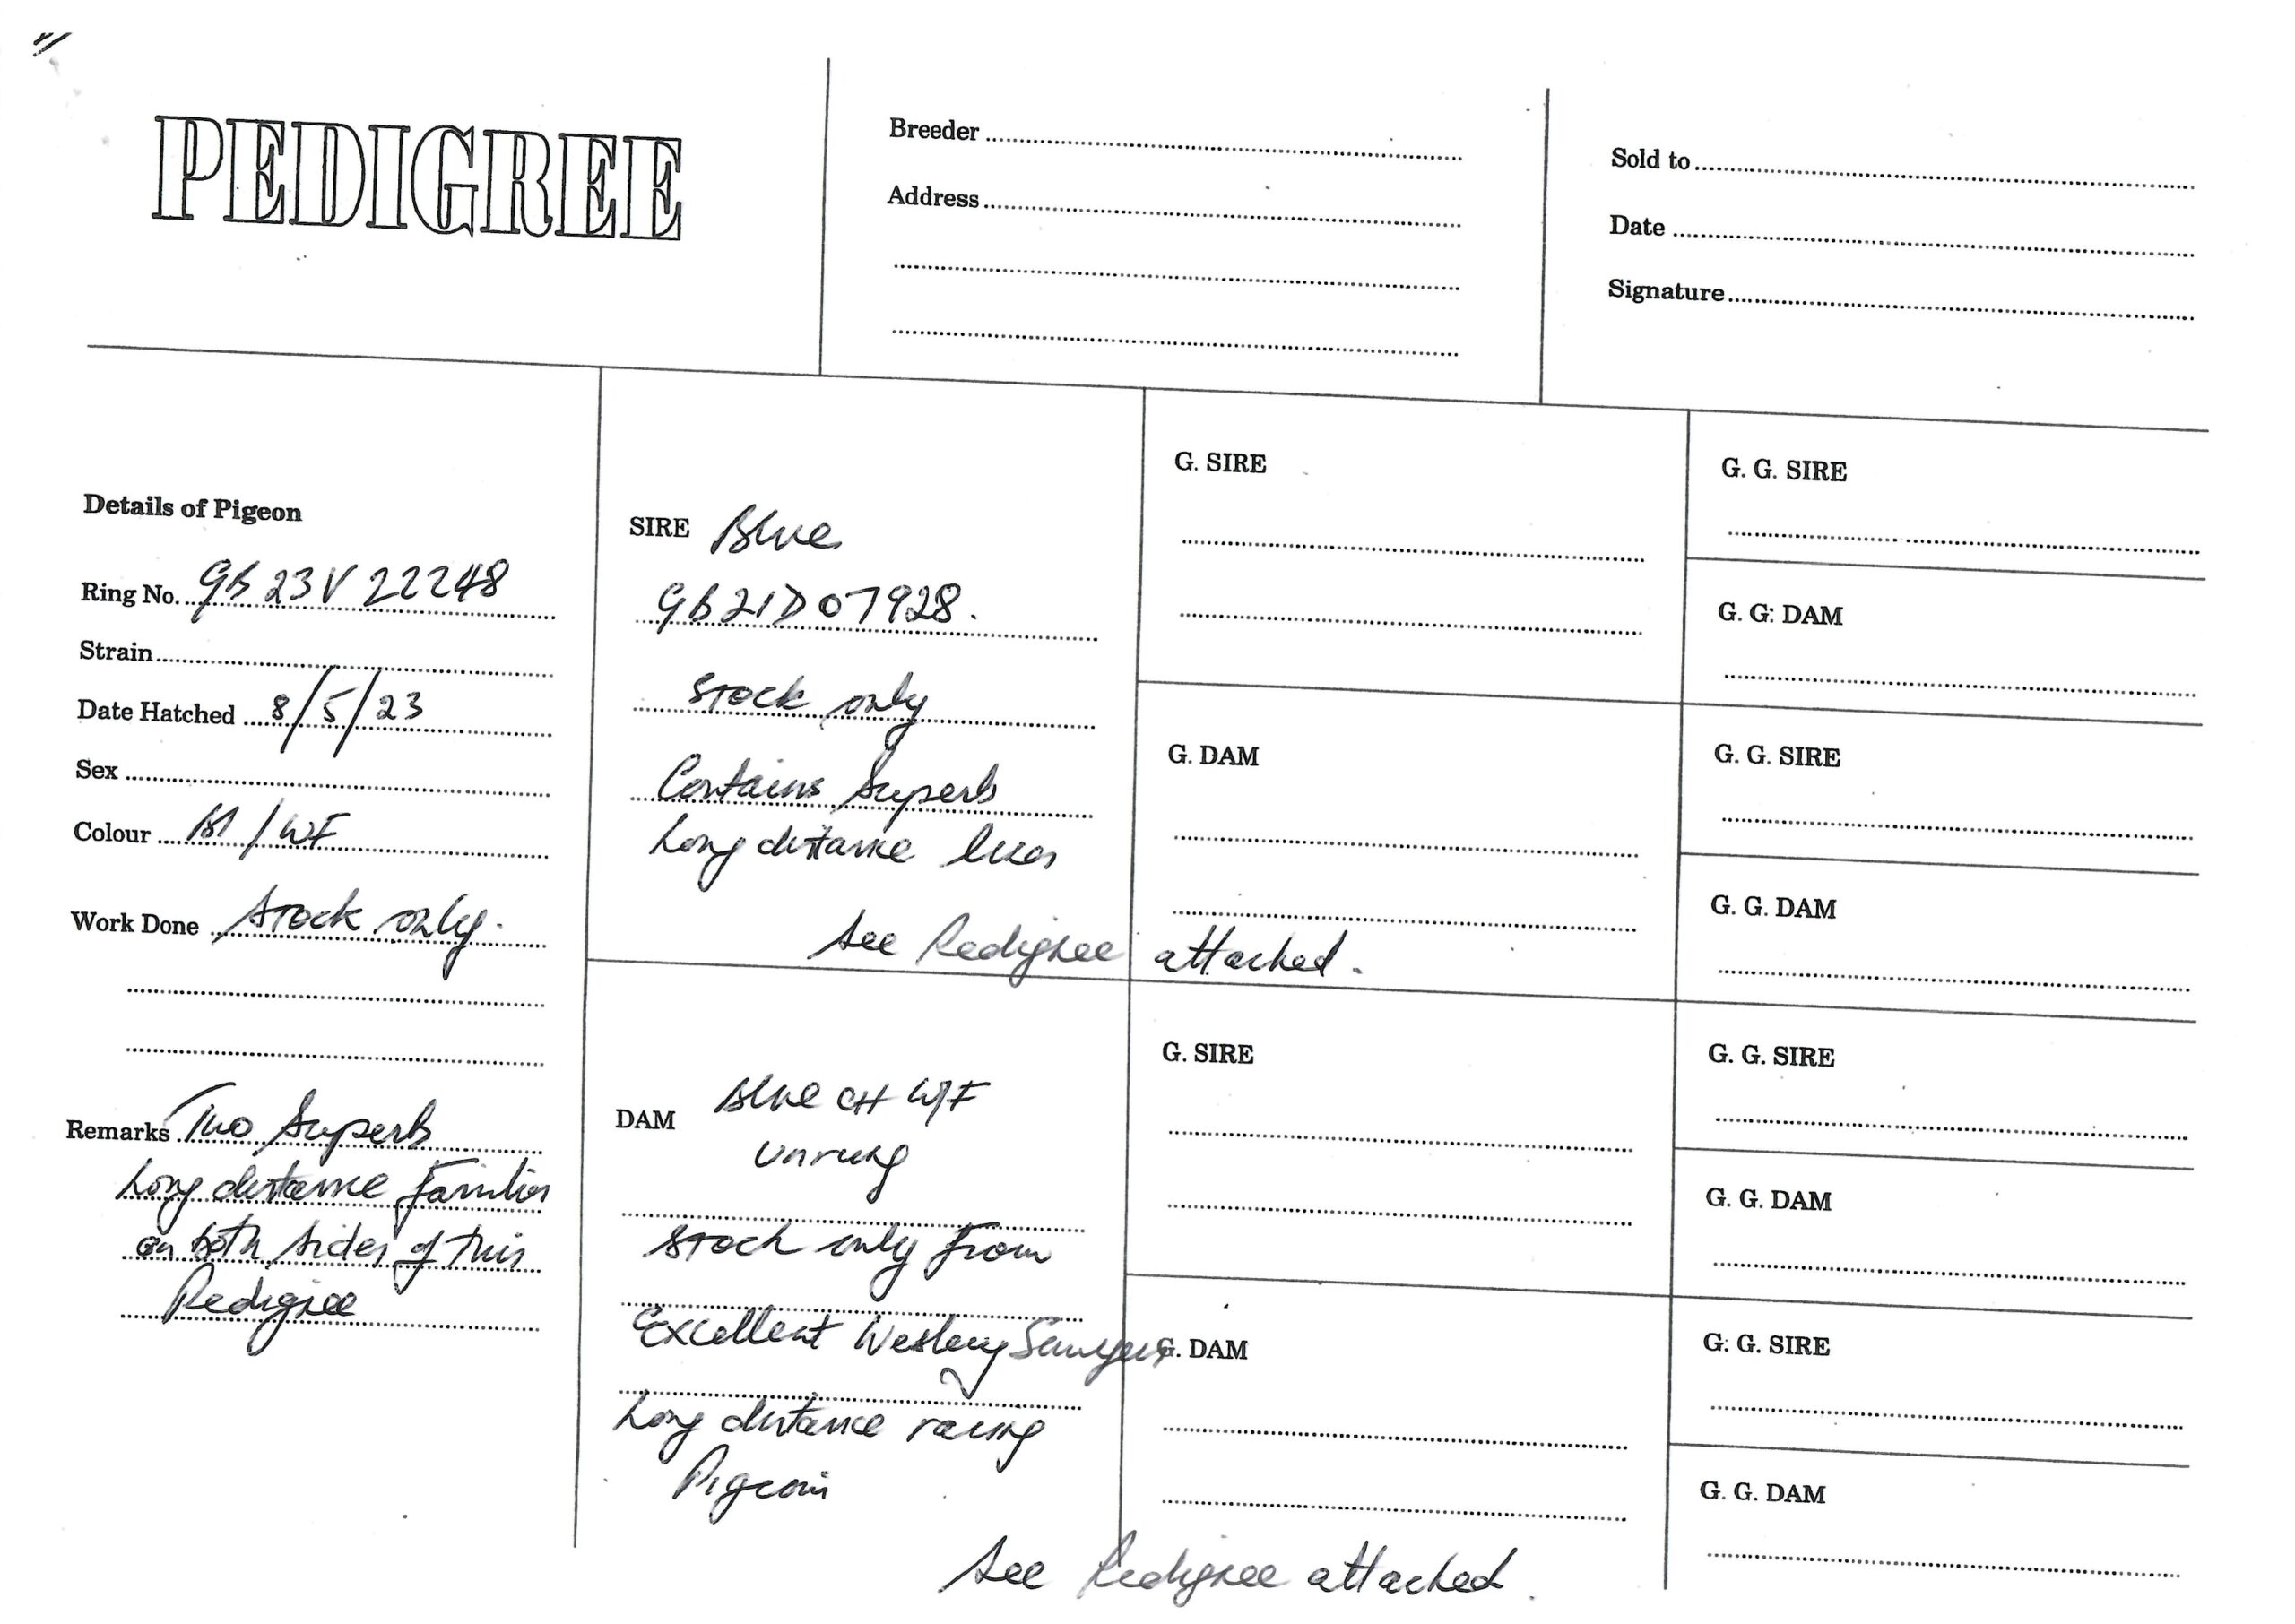 PEDIGREE
Breeder
Address
Sold to
Date
Signature
Details of Pigeon
Ring No. GB 23 V 22248
Strain
Date Hatched 8/5/23
Sex
Colour Bl / WF
Work Done Stock only.
Remarks Two Superb
Long distance families
on both sides of this
Pedigree
SIRE Blue
GB21D07928.
Stock only
Contains Superb
Long distance lines
See Pedigree attached.
DAM Blue CH W/F
unrung
Stock only from
Excellent Wesley Sawyers
Long distance racing
Pigeons
See Pedigree attached.
G. SIRE
G. DAM
G. SIRE
G. DAM
G. G. SIRE
G. G: DAM
G. G. SIRE
G. G. DAM
G. G. SIRE
G. G. DAM
G. G. SIRE
G. G. DAM